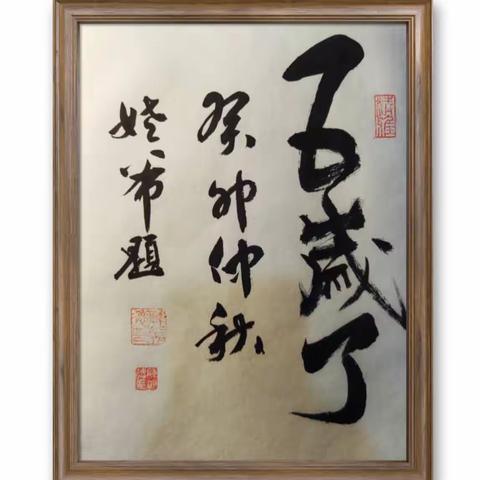 五歲了
癸卯仲秋
姥爷題